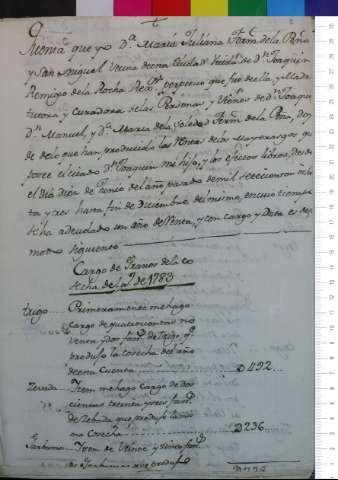 Quenta que yo Dª María Juliana Fern. de la Peña
y San Miguel vecina de esta ciudad viuda de Dn. Joaquin
Remigio de la Rocha Rexor. perpetuo que fue de ella, y Madre
tutora y Curadora de las Personas, y Vienes de Dn. Joaquin
Dn. Manuel, y Dª María de la Soledad Fern. de la Peña, doy
de lo que han producido las Rentas de los Mayorazgos, que
posee el citado Dn. Joaquin mi hijo, y los efectos libres, desde
el dia diez de Junio del año pasado de mil setecientos ochen
ta y tres hasta fin de Diciembre del mismo, en cuio tiempo
se ha adeudado un año de Renta, y con cargo y Data es
mo siguiente
Cargo de Granos de la co
secha de 1783
trigo Primeramente me hago
cargo de quatrocientas no
venta y dos fans. de trigo, q.
produjo la cosecha del año
de esta Cuenta D492
Zevada Item me hago Cargo de dos
cientas treinta y seis fans.
de Zebada que produjo la mis
ma Cosecha D236
Garbanzos Item de
de Garbanzos que produjo